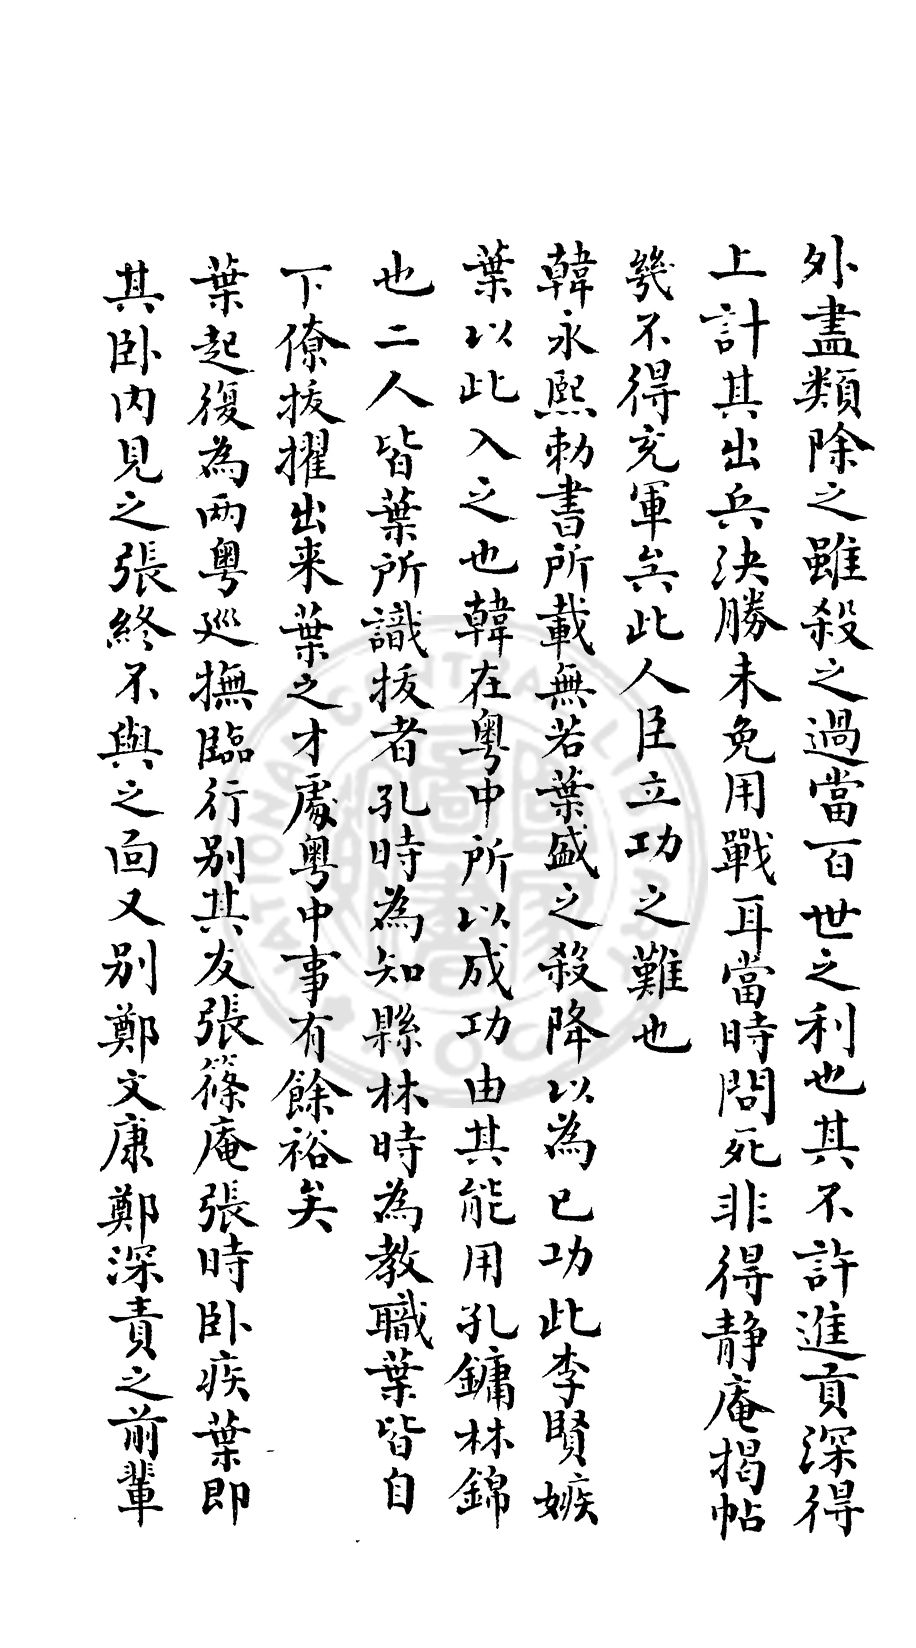 外盡類除之雖殺之過當百世之利也其不許進貢深得
上計其出兵決勝未免用戰耳當時問死非得静庵揭帖
幾不得充軍矣此人臣立功之難也
韓永熙勅書所載無若葉盛之殺降以為已功此李賢嫉
葉以此入之也韓在粤中所以成功由其能用孔鏞林錦
也二人皆葉所識拔者孔時為知縣林時為教職葉皆自
下僚拔擢出来葉之才處粤中事有餘裕矣
葉起復為两粤廵撫臨行别其友張篠庵張時卧疾葉即
其卧内見之張終不與之面又别鄭文康鄭深責之前輩
NATIONAL CENTRAL LIBRARY